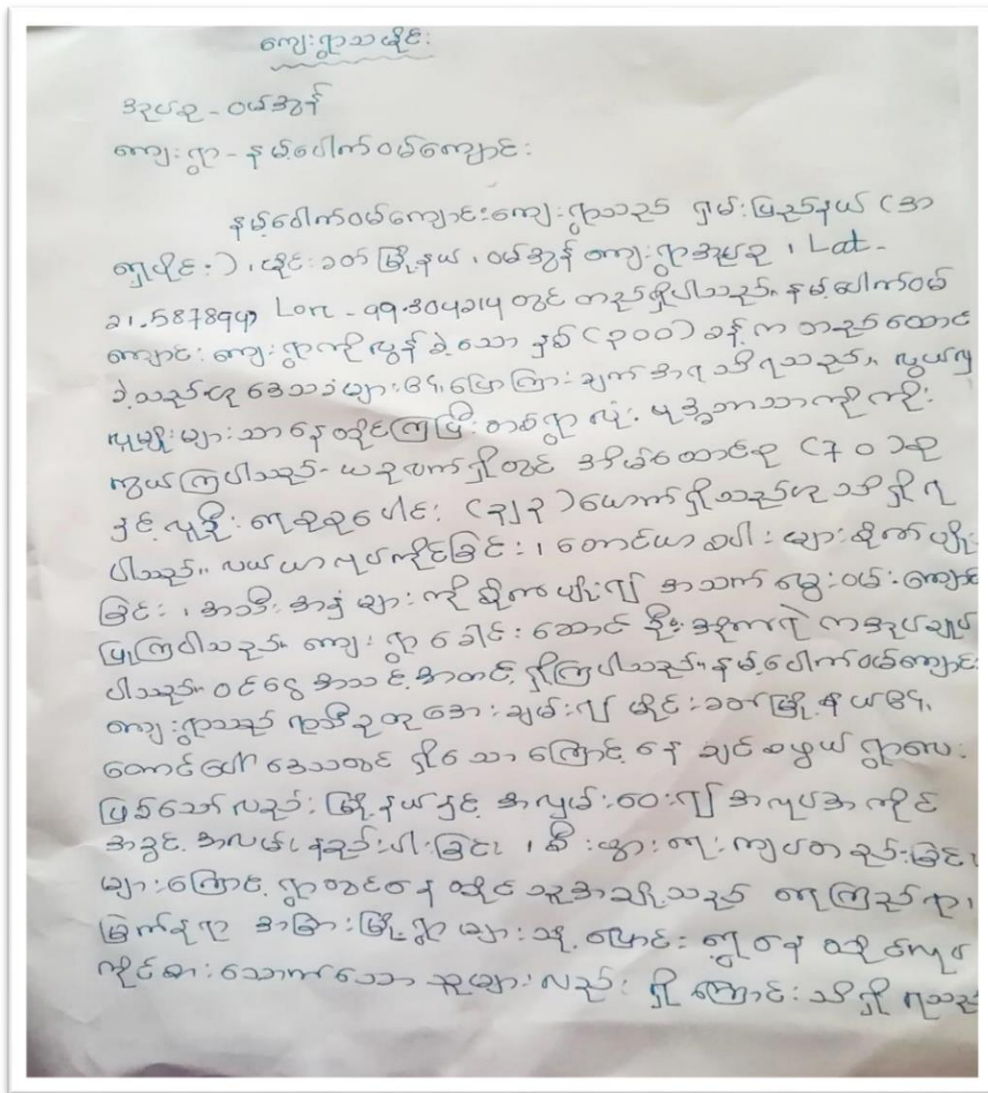 ကျေးရွာသမိုင်း
အုပ်စု - ဝမ်အွန်
ကျေးရွာ - နမ့်ပေါက်ဝမ်ကျောင်း
နမ့်ပေါက်ဝမ်ကျောင်းကျေးရွာသည် ရှမ်းပြည်နယ် (အ
ရှေ့ပိုင်း)၊ မိုင်းခတ်မြို့နယ်၊ ဝမ်အွန် ကျေးရွာအုပ်စု ၊ Lat -
၂၁.587894, Lon - ၉၉.၃၀၄၅၂၁၄ တွင် တည်ရှိပါသည်။ နမ့်ပေါက်ဝမ်
ကျောင်း ကျေးရွာကိုလွန်ခဲ့သော နှစ် (၃၀၀) ခန့်က တည်ထောင်
ခဲ့သည်ဟု ဒေသခံများ၏ ပြောကြားချက်အရ သိရသည်။ လွယ်လ
လူမျိုးများသာ နေထိုင်ကြပြီး တစ်ရွာလုံး ဗုဒ္ဓဘာသာကိုကိုး
ကွယ်ကြပါသည်။ ယခုလက်ရှိတွင် အိမ်ထောင်စု (၇၀)စု
နှင့် လူဦးရေစုစုပေါင်း (၃၂၃)ယောက် ရှိသည်ဟု သိရှိရ
ပါသည်။ လယ်ယာလုပ်ကိုင်ခြင်း၊ တောင်ယာစပါးများစိုက်ပျိုး
ခြင်း၊ အသီးအနှံများကို စိုက်ပျိုး၍ အသက်မွေးဝမ်းကျောင်း
ပြုကြပါသည်။ ကျေးရွာခေါင်းဆောင် ဦး က အုပ်ချုပ်
ပါသည်။ ဝင်ငွေ အသင့်အတင့် ရှိကြပါသည်။ နမ့်ပေါက်ဝမ်ကျောင်း
ကျေးရွာသည် ရာသီဥတု အေးချမ်း၍ မိုင်းခတ်မြို့နယ်၏
တောင်ပေါ်ဒေသတွင် ရှိသောကြောင့် နေချင်စဖွယ် ရွာလေး
ဖြစ်သော်လည်း မြို့နယ်နှင့် အလှမ်းဝေး၍ အလုပ်အကိုင်
အခွင့်အလမ်း နည်းပါးခြင်း၊ စီးပွားရေး ကျပ်တည်းခြင်း
များကြောင့် ရွာတွင်နေထိုင်သူအချို့သည် ရေကြည်ရာ၊
မြက်နုရာ အခြားမြို့ရွာများသို့ ပြောင်းရွှေ့နေထိုင်လုပ်
ကိုင်စားသောက်သော သူများလည်း ရှိကြောင်း သိရှိရသည်